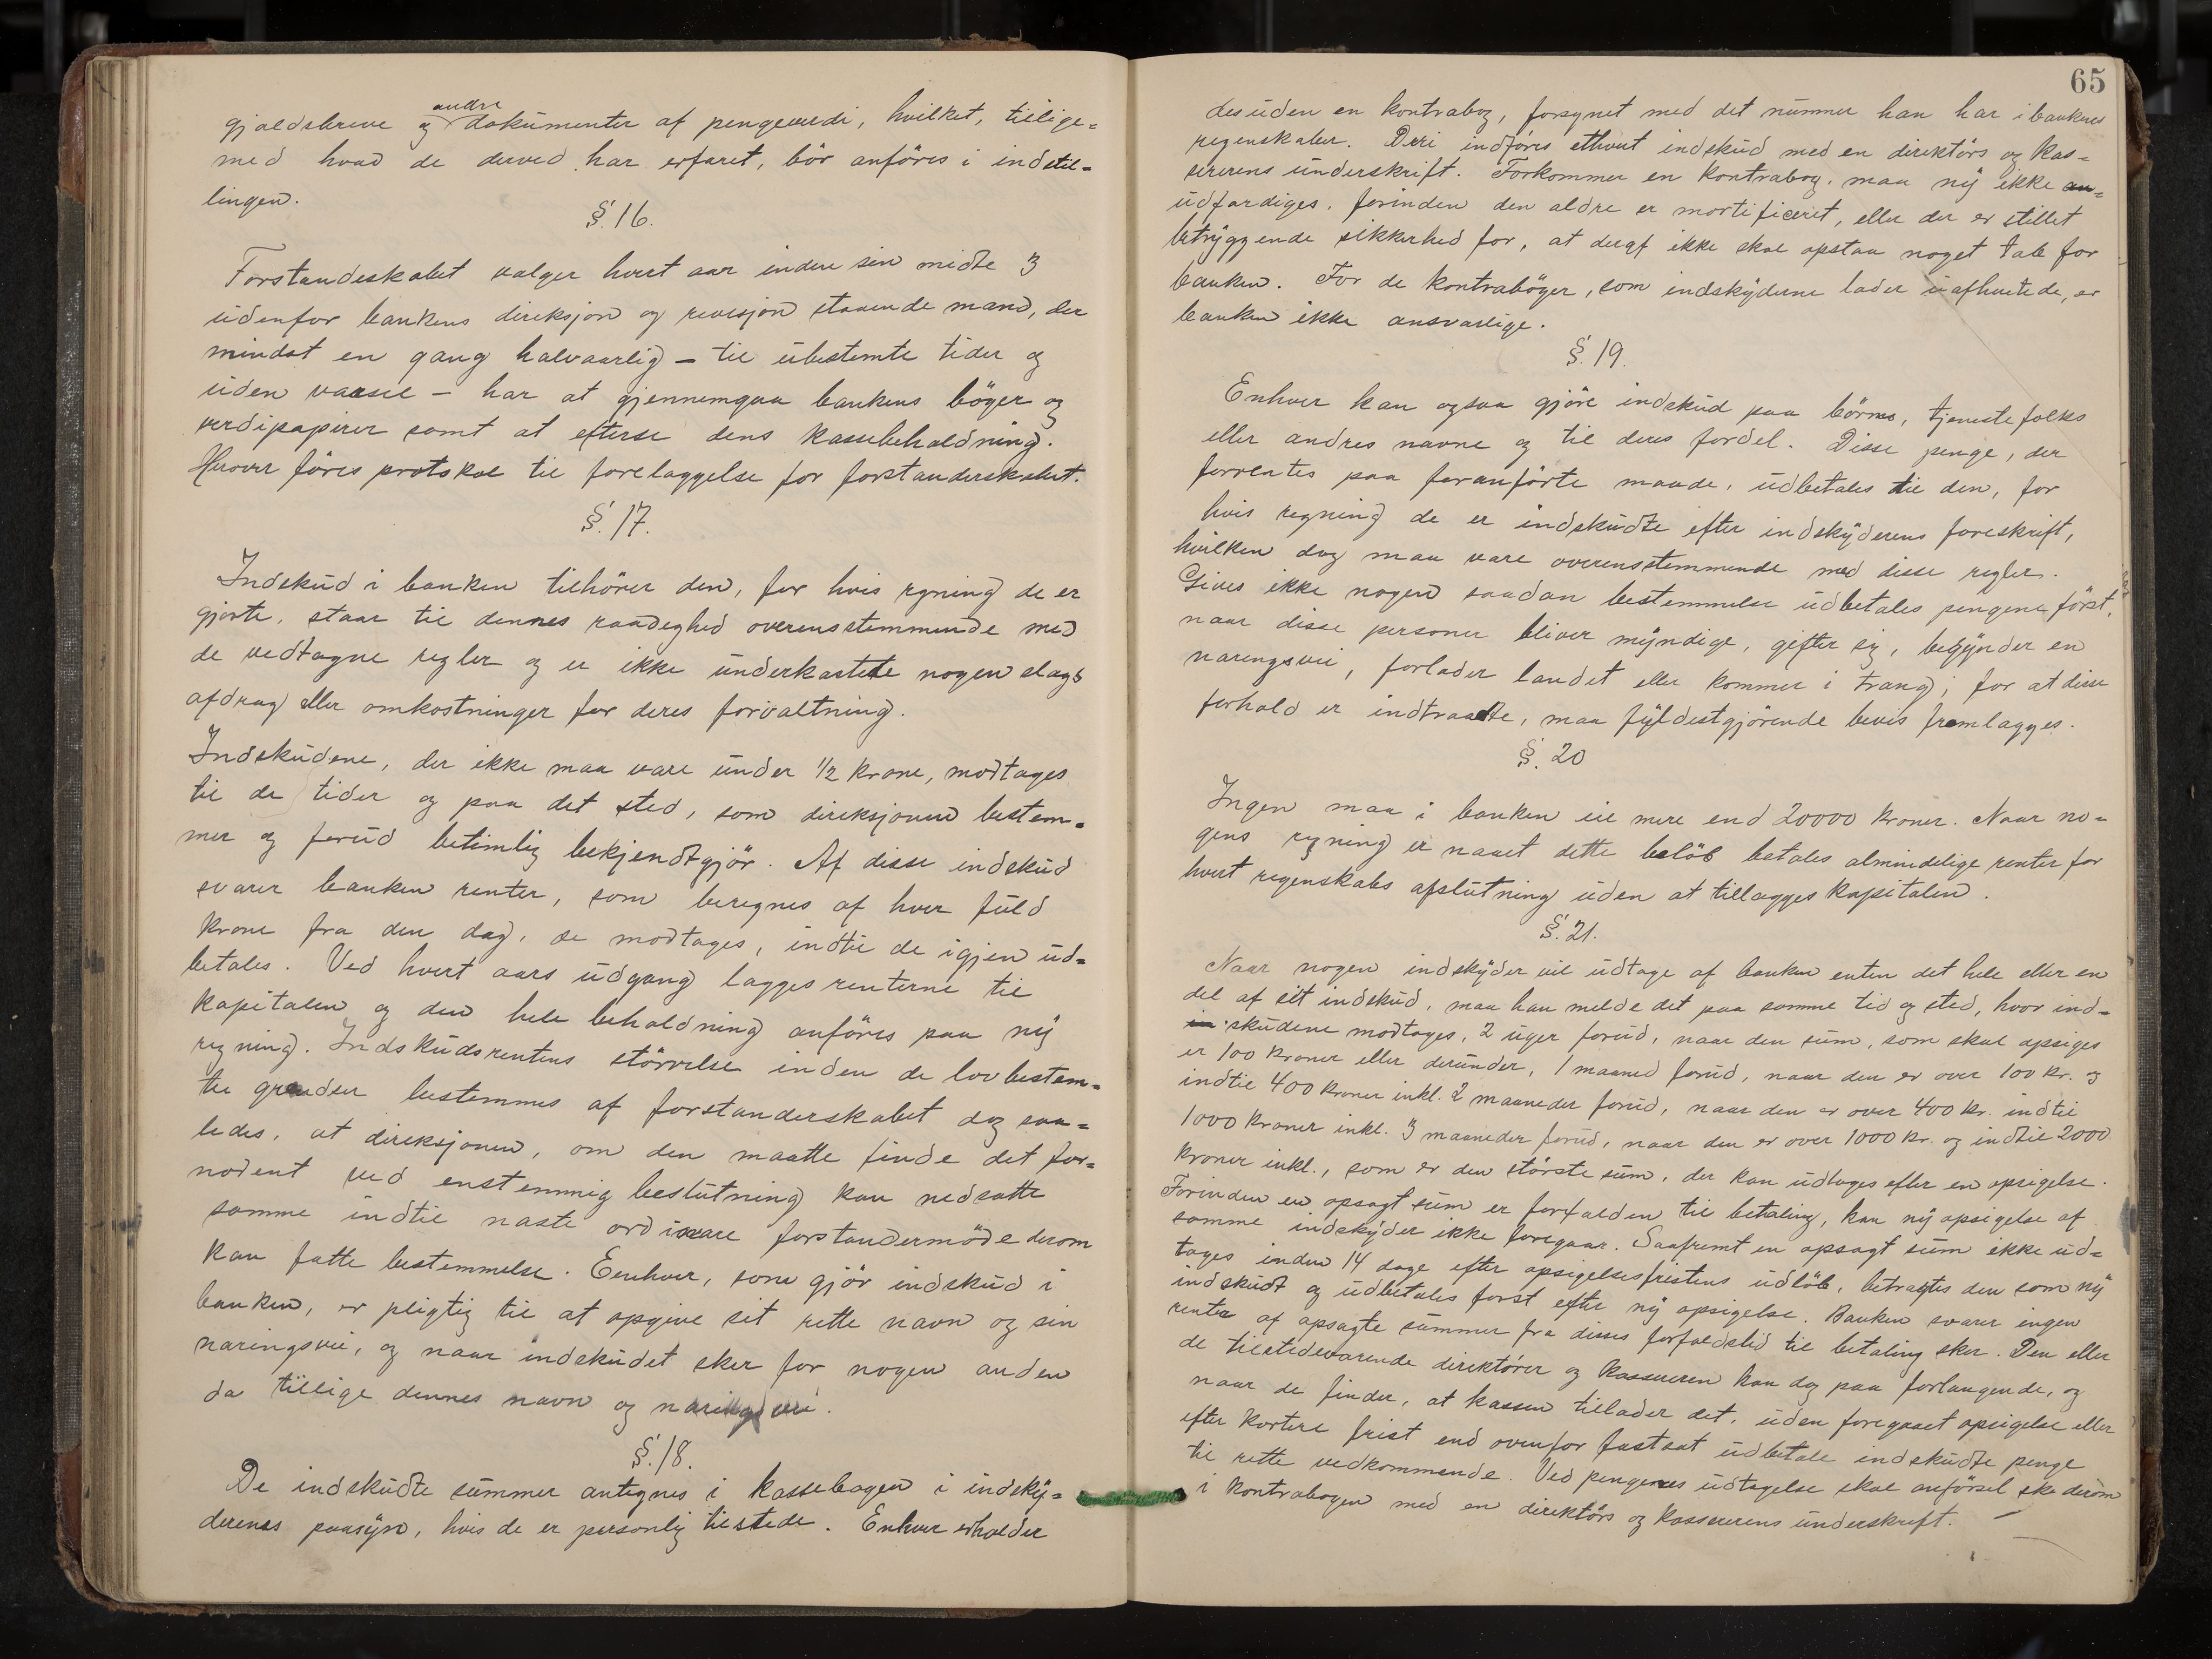 gjældsbreve og andre dokumenter af pengeverdi, hvilket, tillige=
med hvad de derved har erfaret, bör anföres i indstil-
lingen.
§. 16.
Forstandeskabet vælger hvert aar inden sin midte 3
udenfor bankens direksjon og revisjon staaende mænd, der
mindst en gang halvaarlig – til ubestemte tider og
uden varsel – har at gjennemgaa bankens böger og
verdipapirer samt at efterse dens kassebeholdning.
Herover föres protokol til forelæggelse for forstanderskabet.
§. 17.
Indskud i banken tilhörer den, for hvis regning de er
gjorte, staar til dennes raadeghed overensstemmende med
de vedtagne regler og er ikke underkastete nogen slags
afdrag eller omkostninger for deres forvaltning.
Indskudene, der ikke maa være under 1/2 krone, modtages
til de tider og paa det sted, som direksjonen bestem=
mer og forud betimlig bekjendtgjör. Af disse indskud
svarer banken renter, som beregnes af hver fuld
krone fra den dag, de modtages, indtil de igjen ud=
betales. Ved hvert aars udgang lægges renterne til
kapitalen og den hele beholdning anföres paa ny
regning. Indskudsrentens störrelse inden de lovbestem=
te grændser bestemmes af forstanderskabet dog saa=
ledes, at direksjonen, om den maatte finde det for=
nødent ved enstemmig beslutning kan nedsætte
samme indtil næste ordinære forstandermöde derom
kan fatte bestemmelse. Eenhver, som gjör indskud i
banken, er pligtig til at opgive sit rette navn og sin
næringsvei, og naar indskudet sker for nogen anden
da tillige dennes navn og næringsvei.
§. 18.
De indskudte summer antegnes i kassebogen i indsky=
derenes paasyn, hvis de er personlig tilstede. Enhver erholder
65
desuden en kontrabog, forsynet med det nummer han har i bankens
regenskaber. Deri indföres ethvert indskud med en direktörs og kas=
sererens underskrift. Forkommer en kontrabog, maa ny ikke an=
udfærdiges, forinden den ældre er mortificeret, eller der er stillet
betryggende sikkerhed for, at deraf ikke skal opstaa noget tab for
banken. For de kontraböger, som indskyderne lader uafhentede, er
banken ikke ansvarlige.
§. 19.
Enhver kan ogsaa gjöre indskud paa börns, tjenestefolks
eller andres navne og til deres fordel. Disse penge, der
forrentes paa foranförte maade, udbetales til den, for
hvis regning de er indskudte efter indskyderens foreskrift,
hvilken dog maa være overensstemmende med disse regler.
Gives ikke nogen saadan bestemmelse udbetales pengene först,
naar disse personer bliver myndige, gifter sig, begynder en
næringsvei, forlader landet eller kommer i trang; for at disse
forhold er indtraadte, maa fyldestgjörende bevis fremlægges.
§. 20
Ingen maa i banken eie mere end 20000 kroner. Naar no=
gens regning er naaet dette belöb betales almindelige renter for
hvert regenskabs afslutning uden at tillægges kapitalen.
§. 21.
Naar nogen indskyder vil udtage af banken enten det hele eller en
del af sit indskud, maa han melde det paa samme tid og sted, hvor ind=
in skudene modtages, 2 uger forud, naar den sum, som skal opsiges
er 100 kroner eller derunder, 1 maaned forud, naar den er over 100 kr. og
indtil 400 kroner inkl. 2 maaneder forud, naar den er over 400 kr. indtil
1000 kroner inkl. 3 maaneder forud, naar den er over 1000 kr. og indtil 2000
kroner inkl., som er den störste sum, der kan udtages efter en opsigelse.
Forinden en opsagt sum er forfalden til betaling, kan ny opsigelse af
samme indskyder ikke foregaar. Saafremt en opsagt sum ikke ud=
tages inden 14 dage efter opsigelsesfristens udlöb, betragtes den som ny
indskudt og udbetales först efter ny opsigelse. Banken svarer ingen
renter af opsagte summer fra disses forfaldstid til betaling sker. Den eller
de tilstedeværende direktörer og kassereren kan dog paa forlangende, og
naar de finder, at kassen tillader det, uden foregaaet opsigelse eller
efter kortere frist end ovenfor fastsat udbetale indskudte penge
til rette vedkommende. Ved pengenes udtagelse skal anförsel ske derom
i kontrabogen med en direktörs og kassererens underskrift.